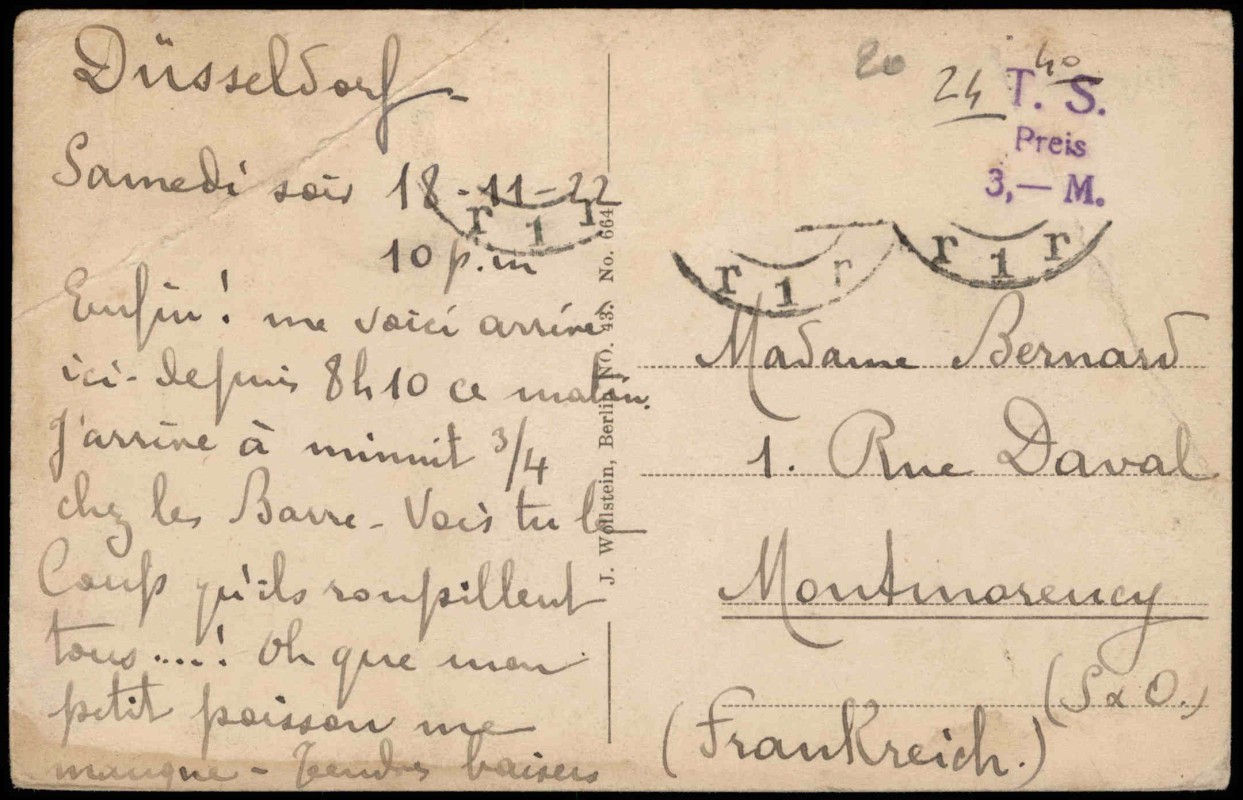 Düsseldorf -
Samedi soir 18-11-22
10 p.m
Enfin! me voici arrivé
ici - depuis 8h10 ce matin.
J'arrive à minuit 3/4
chez les Barre - Vois tu le
Coup qu'ils roupillent
tous....! Oh que mon
petit poisson me
manque - Tendres baisers
J. Wollstein, Berlin NO. 43. No. 664
20
24
40
T. S.
Preis
3,— M.
r 1 r
r 1 r
r 1 r
Madame Bernard
1. Rue Daval
Montmorency
(S & O.)
(Frankreich.)